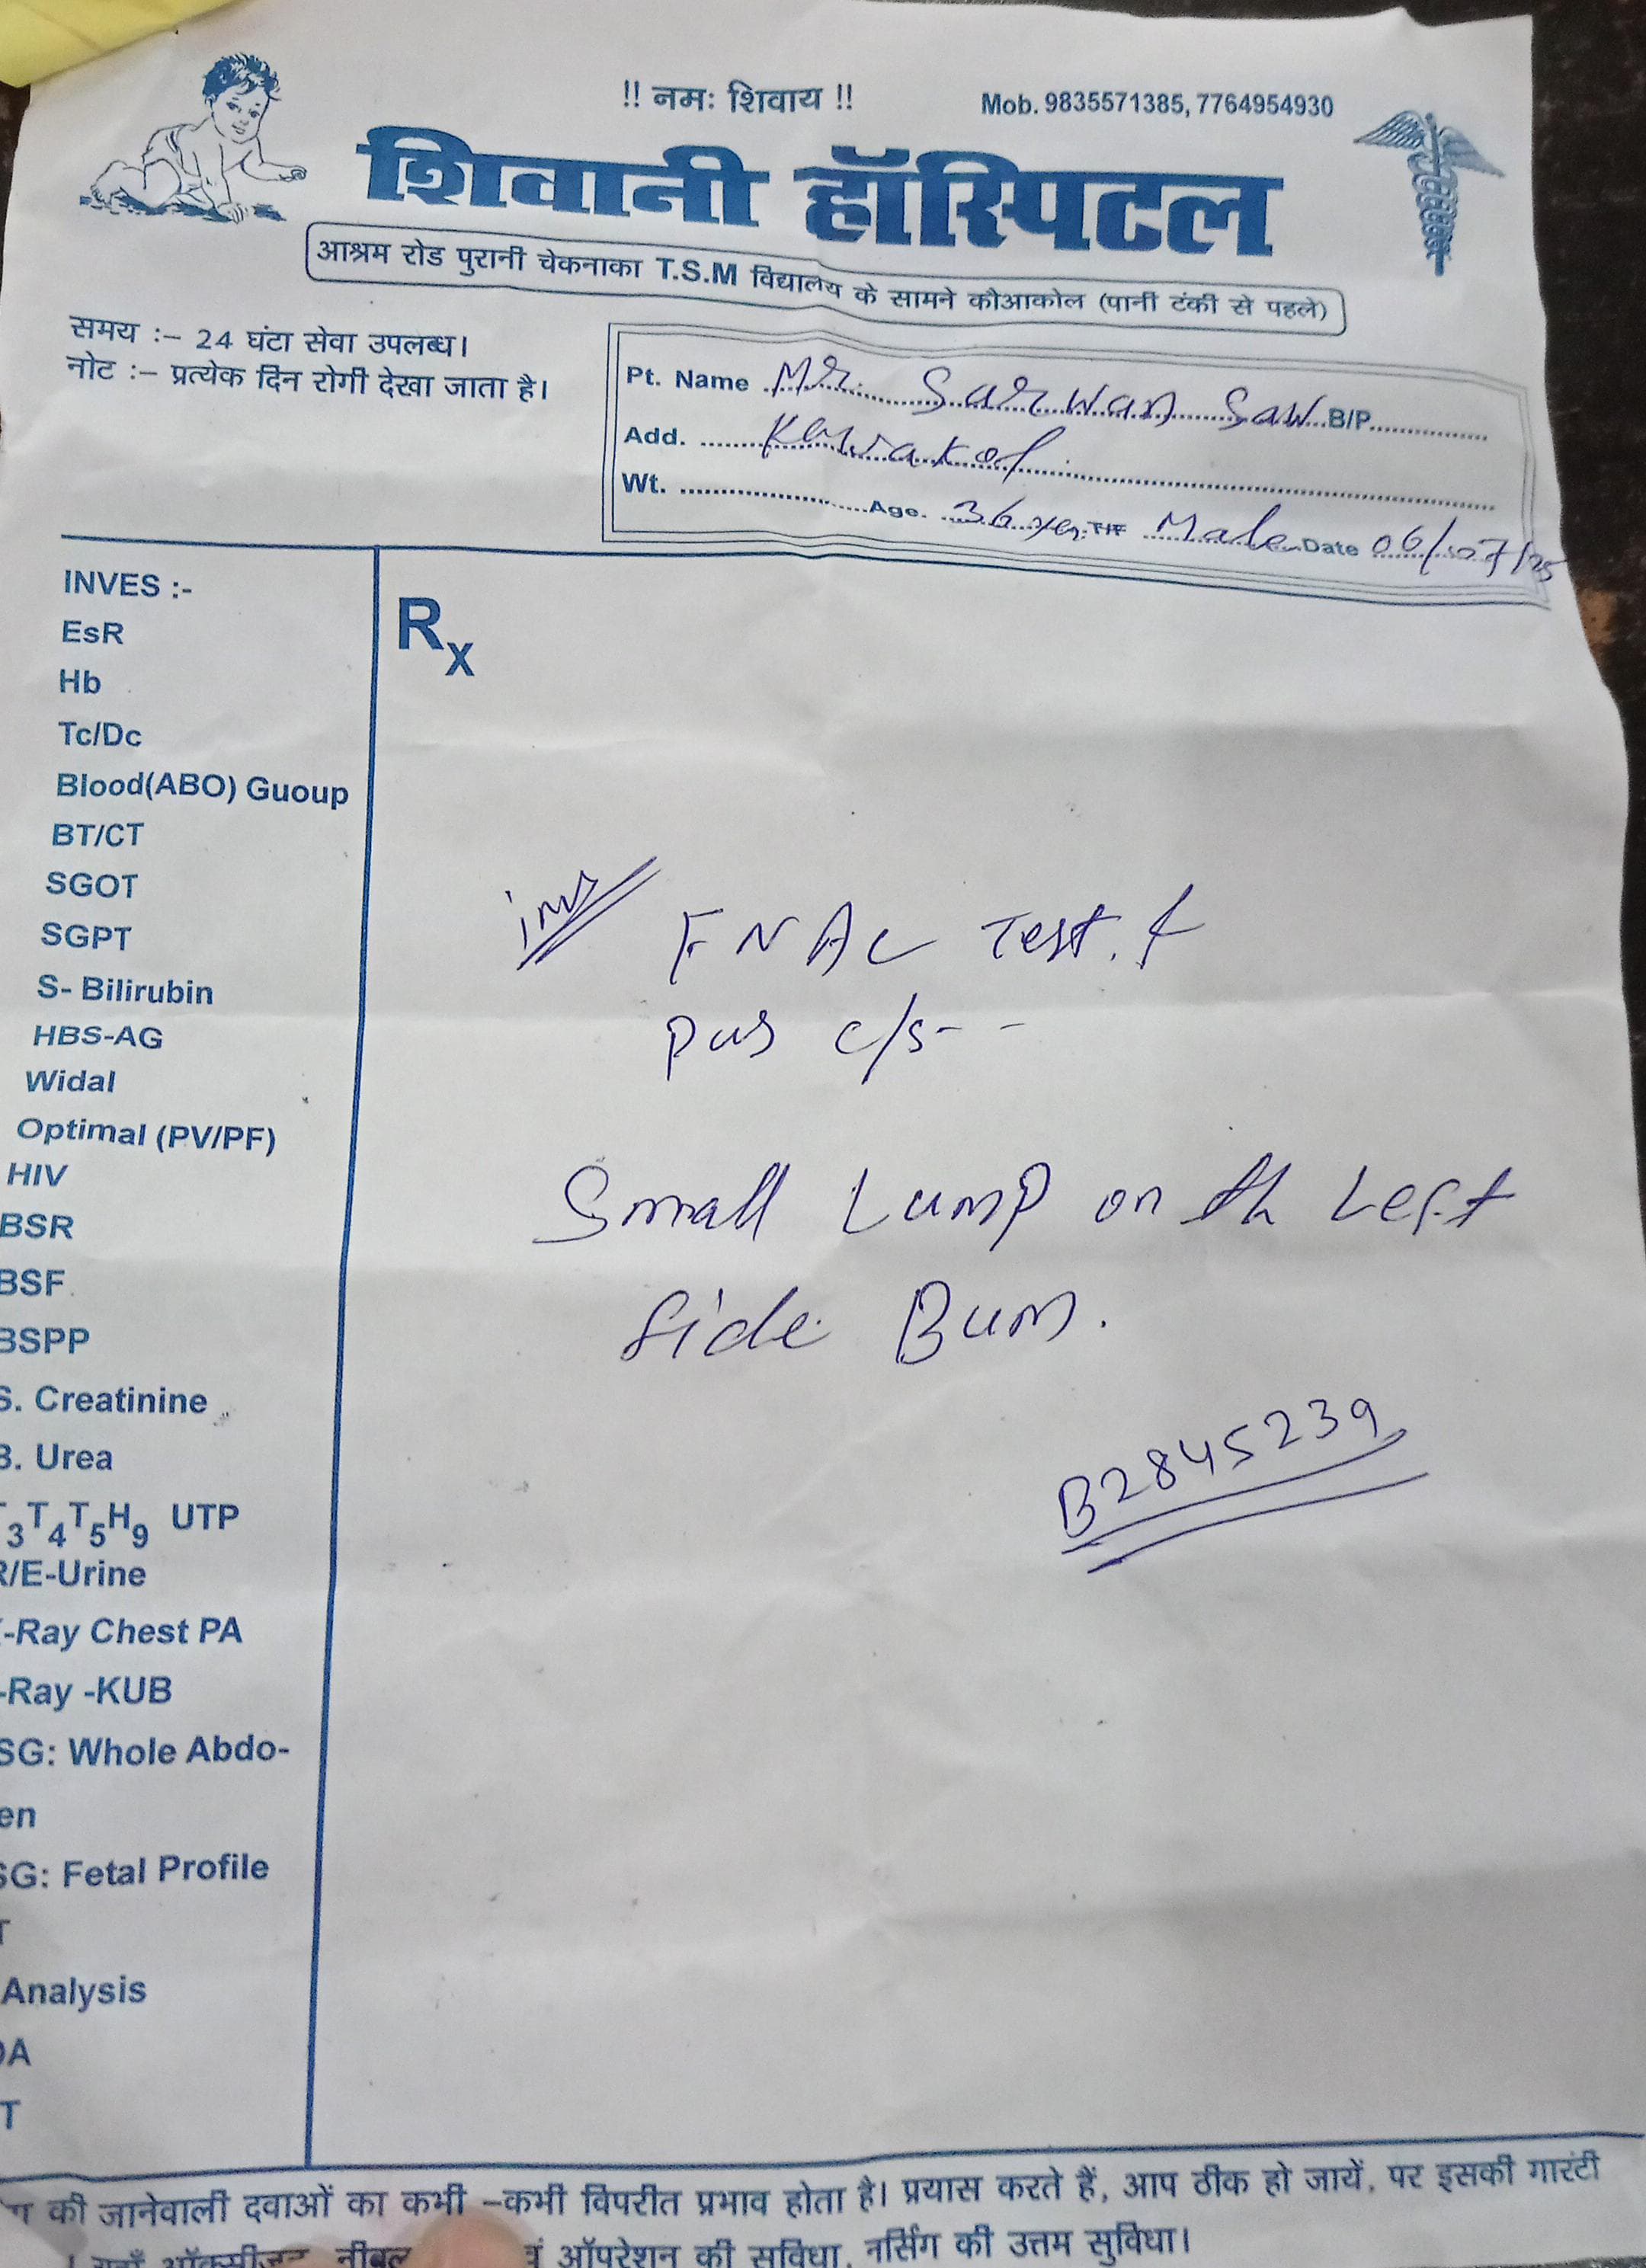 !! नमः शिवाय !!
Mob. 9835571385, 7764954930
शिवानी हॉस्पिटल
आश्रम रोड पुरानी चेकनाका T.S.M विद्यालय के सामने कौआकोल (पानी टंकी से पहले)
समय :– 24 घंटा सेवा उपलब्ध।
नोट :– प्रत्येक दिन रोगी देखा जाता है।
Pt. Name Mr. Sarwan Saw B/P
Add. Kawakol
Wt. Age. 36 yrs. Male Date 06/07/25
INVES :-
EsR
Hb
Tc/Dc
Blood(ABO) Guoup
BT/CT
SGOT
SGPT
S- Bilirubin
HBS-AG
Widal
Optimal (PV/PF)
HIV
BSR
BSF
BSPP
S. Creatinine
B. Urea
T3T4T5H9 UTP
R/E-Urine
-Ray Chest PA
-Ray -KUB
SG: Whole Abdo-
en
SG: Fetal Profile
T
Analysis
DA
T
Rx
inv
FNAC Test. &
Pus c/s - -
Small Lump on th Left
Side Bum.
B2845239
की जानेवाली दवाओं का कभी –कभी विपरीत प्रभाव होता है। प्रयास करते हैं, आप ठीक हो जायें, पर इसकी गारंटी
ऑपरेशन की सुविधा, नर्सिंग की उत्तम सुविधा।